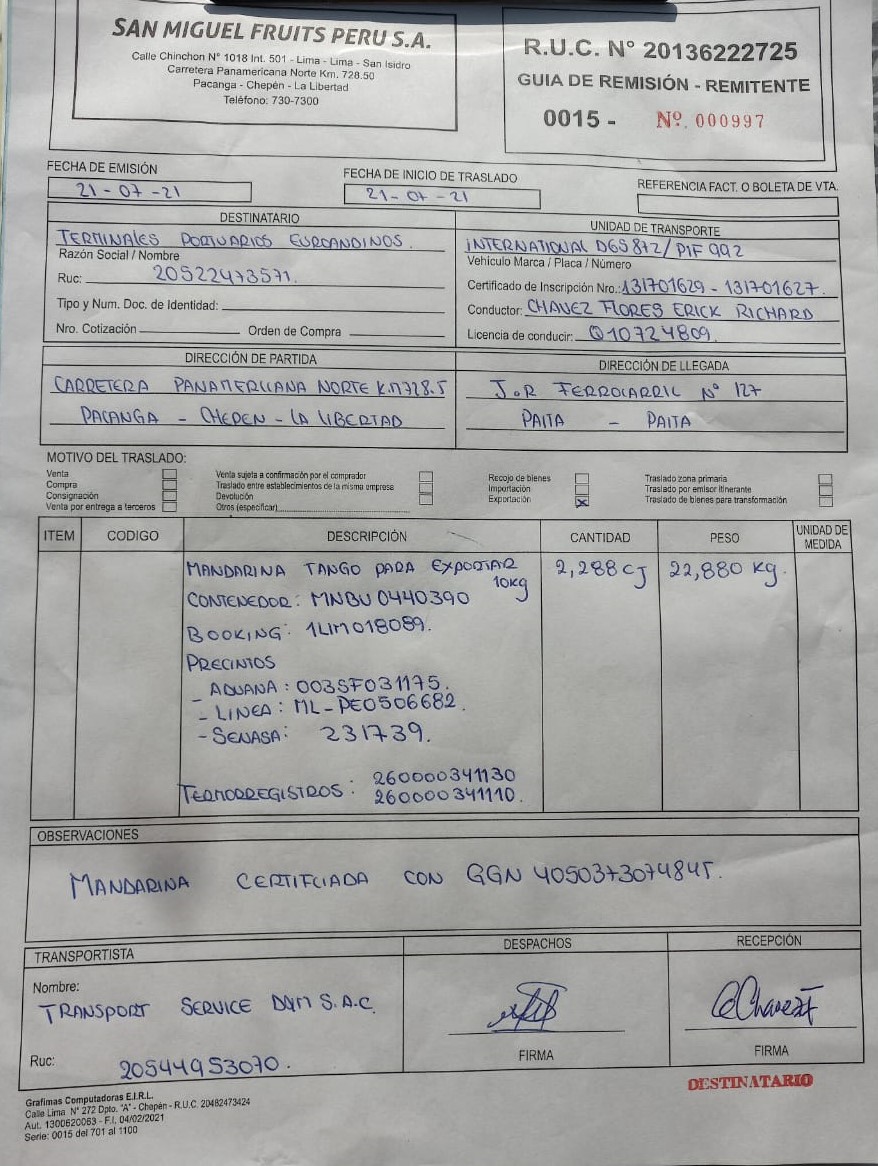 SAN MIGUEL FRUITS PERU S.A.
Calle Chinchon N° 1018 Int. 501 - Lima - Lima - San Isidro
Carretera Panamericana Norte Km. 728.50
Pacanga - Chepén - La Libertad
Teléfono: 730-7300
R.U.C. N° 20136222725
GUIA DE REMISIÓN - REMITENTE
0015 - Nº. 000997
FECHA DE EMISIÓN
21-07-21
FECHA DE INICIO DE TRASLADO
21-07-21
REFERENCIA FACT. O BOLETA DE VTA.
DESTINATARIO
TERMINALES PORTUARIOS EUROANDINOS.
Razón Social / Nombre
Ruc: 20522473571.
Tipo y Num. Doc. de Identidad:
Nro. Cotización Orden de Compra
UNIDAD DE TRANSPORTE
INTERNATIONAL D6S 872/P1F 992
Vehículo Marca / Placa / Número
Certificado de Inscripción Nro.: 131701629 - 131701627.
Conductor: CHAVEZ FLORES ERICK RICHARD
Licencia de conducir: Q10724809.
DIRECCIÓN DE PARTIDA
CARRETERA PANAMERICANA NORTE K.M728.5
PACANGA - CHEPEN - LA LIBERTAD
DIRECCIÓN DE LLEGADA
J.R FERROCARRIL N° 127
PAITA - PAITA
MOTIVO DEL TRASLADO:
Venta
Compra
Consignación
Venta por entrega a terceros
Venta sujeta a confirmación por el comprador
Traslado entre establecimientos de la misma empresa
Devolución
Otros (especificar)
Recojo de bienes
Importación
Exportación X
Traslado zona primaria
Traslado por emisor itinerante
Traslado de bienes para transformación
ITEM CODIGO DESCRIPCIÓN CANTIDAD PESO UNIDAD DE MEDIDA
MANDARINA TANGO PARA EXPORTAR 10kg 2,288 CJ 22,880 kg.
CONTENEDOR: MNBU 0440390
BOOKING: 1LIM018089.
PRECINTOS
- ADUANA: 003SF031175.
- LINEA: ML-PE0506682.
- SENASA: 231739.
TERMORREGISTROS: 260000341130
260000341110.
OBSERVACIONES
MANDARINA CERTIFCIADA CON GGN 4050373074845.
TRANSPORTISTA
Nombre:
TRANSPORT SERVICE D&M S.A.C.
Ruc: 20544953070.
DESPACHOS
FIRMA
RECEPCIÓN
FIRMA
DESTINATARIO
Grafimas Computadoras E.I.R.L.
Calle Lima N° 272 Dpto. "A" - Chepén - R.U.C. 20482473424
Aut. 1300620063 - F.I. 04/02/2021
Serie: 0015 del 701 al 1100